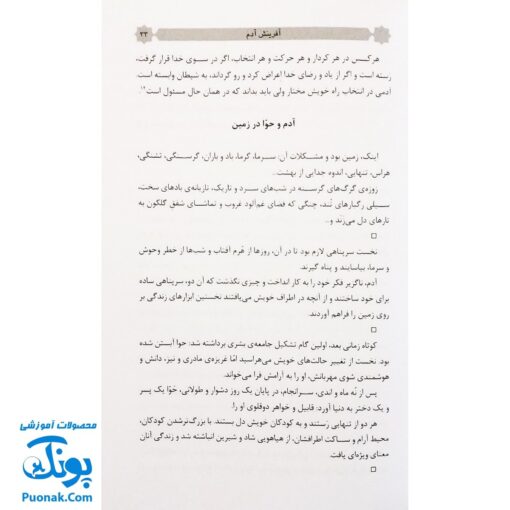 آفرینش آدم
۲۳
هرکس در هر کردار و هر حرکت و هر انتخاب، اگر در سوی خدا قرار گرفت،
رسته است و اگر از یاد و رضای خدا اعراض کرد و رو گرداند، به شیطان وابسته است.
آدمی در انتخاب راه خویش مختار ولی باید بداند که در همان حال مسئول است"۱
آدم و حوّا در زمین
اینک، زمین بود و مشکلات آن: سرما، گرما، باد و باران، گرسنگی، تشنگی،
هراس، تنهایی، اندوه جدایی از بهشت...
زوزه‌ی گرگ‌های گرسنه در شب‌های سرد و تاریک، تازیانه‌ی بادهای سخت،
سیلی رگبارهای تُند، چنگی که فضای غم‌آلود غروب و تماشای شفق گلگون به
تارهای دل می‌زند و...
نخست سرپناهی لازم بود تا در آن، روزها از هُرم آفتاب و شب‌ها از خطر وحوش
و سرما، بیاسایند و پناه گیرند.
آدم، ناگزیر فکر خود را به کار انداخت و چیزی نگذشت که آن دو، سرپناهی ساده
برای خود ساختند و از آنچه در اطراف خویش می‌یافتند نخستین ابزارهای زندگی بر
روی زمین را فراهم آوردند.
کوتاه زمانی بعد، اولین گام تشکیل جامعه‌ی بشری برداشته شد: حوا آبستن شده
بود. نخست از تغییر حالت‌های خویش می‌هراسید امّا غریزه‌ی مادری و نیز، دانش و
هوشمندی شوی مهربانش، او را به آرامش فرا می‌خواند.
پس از نُه ماه و اندی، سرانجام، در پایان یک روز دشوار و طولانی، حَوّا یک پسر
و یک دختر به دنیا آورد: قابیل و خواهر دوقلوی او را.
هر دو از تنهایی رَستند و به کودکان خویش دل بستند. با بزرگ‌ترشدن کودکان،
محیط آرام و ساکت اطرافشان، از هیاهویی شاد و شیرین انباشته شد و زندگی آنان
معنای ویژه‌ای یافت.
محصولات آموزشی
پونک
Puonak.Com